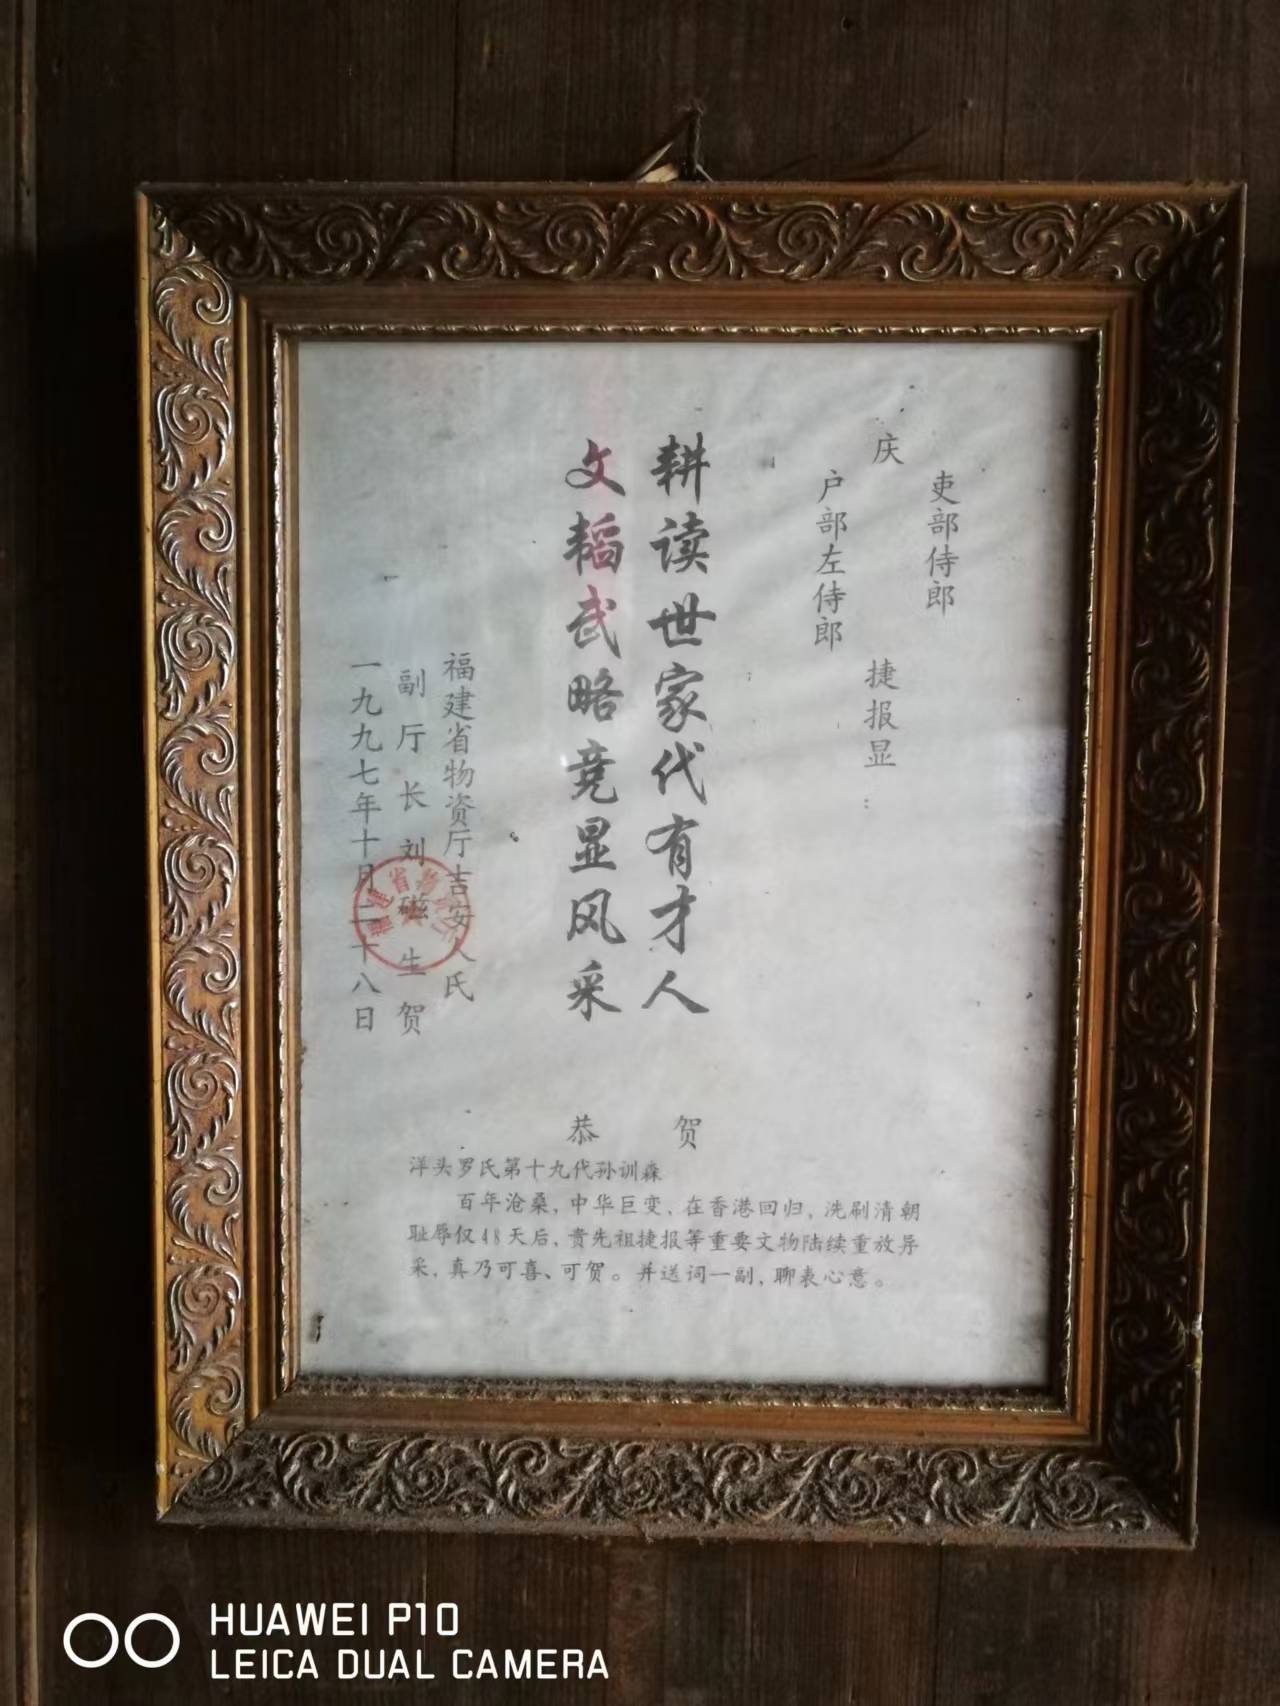 吏部侍郎
庆
户部左侍郎
捷报显：
耕读世家代有才人
文韬武略竞显风采
福建省物资厅吉安人氏
副厅长刘磁生贺
一九九七年十月二十八日
恭贺
洋头罗氏第十九代孙训森
百年沧桑，中华巨变，在香港回归，洗刷清朝
耻辱仅48天后，贵先祖捷报等重要文物陆续重放异
采，真乃可喜、可贺。并送词一副，聊表心意。
HUAWEI P10
LEICA DUAL CAMERA